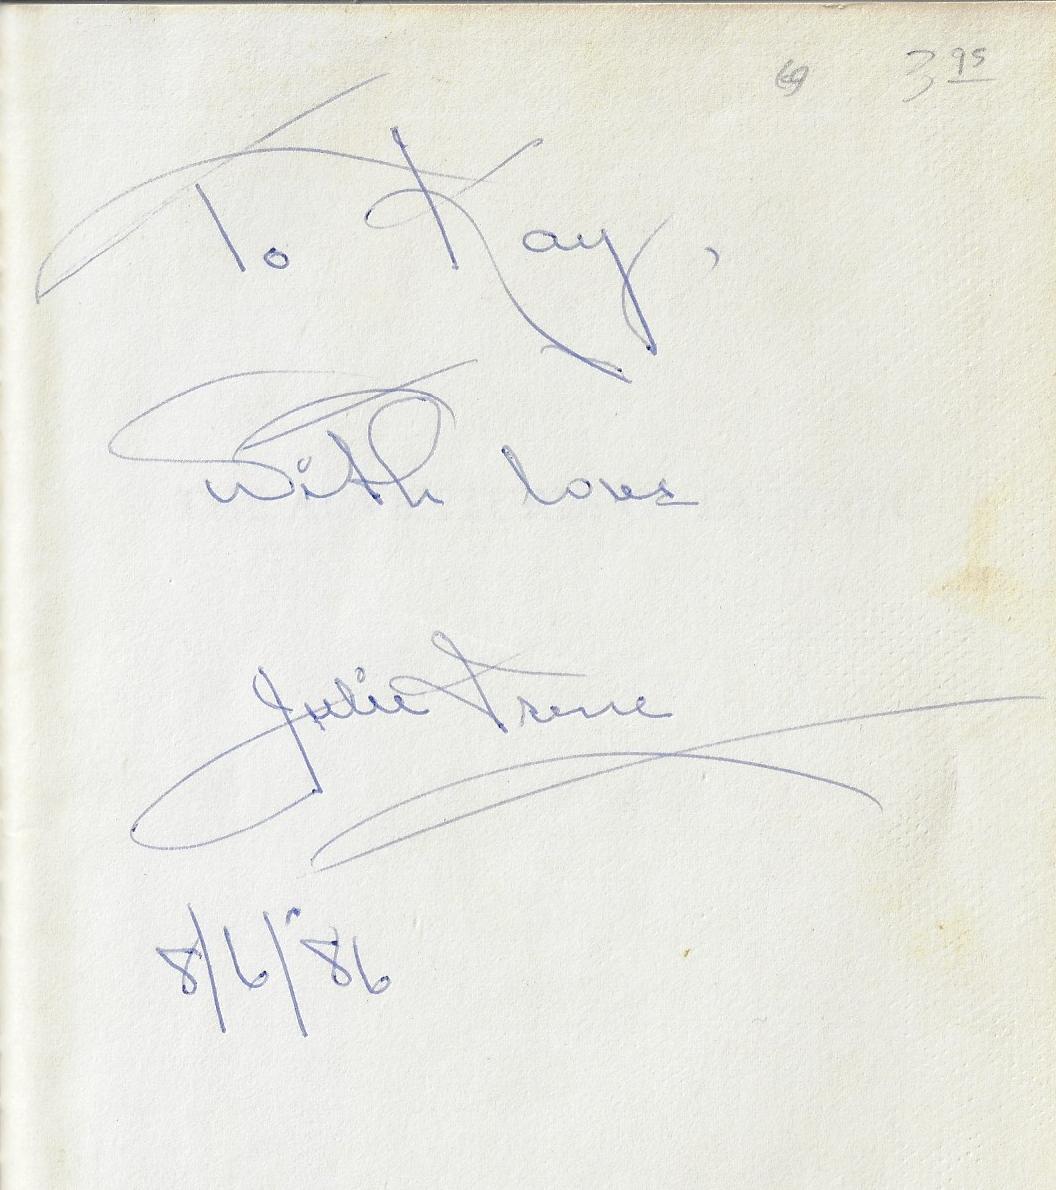 3 95
To Kay,
With love
Julie Irene
8/6/'86